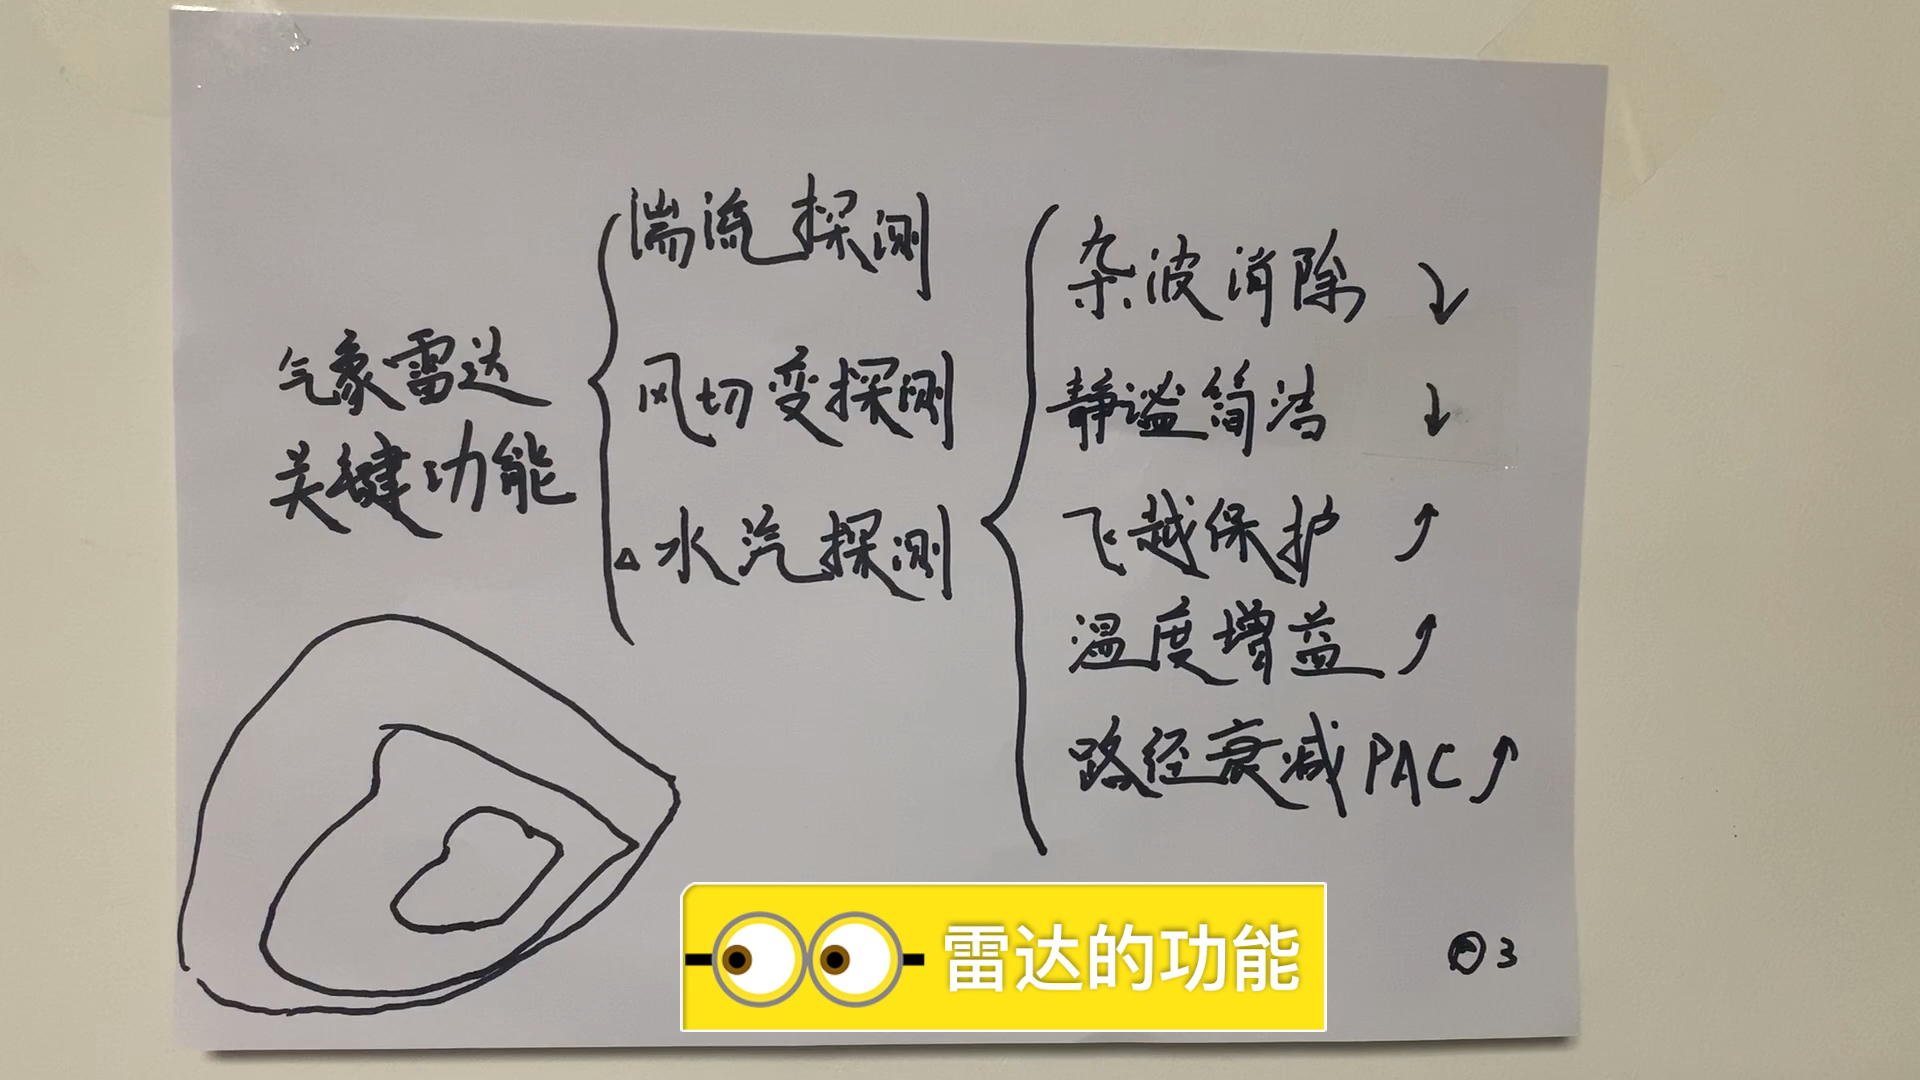 气象雷达
关键功能
湍流探测
风切变探测
水汽探测
杂波消除 ↓
静谧简洁 ↓
飞越保护 ↑
温度增益 ↑
路径衰减PAC ↑
雷达的功能
3